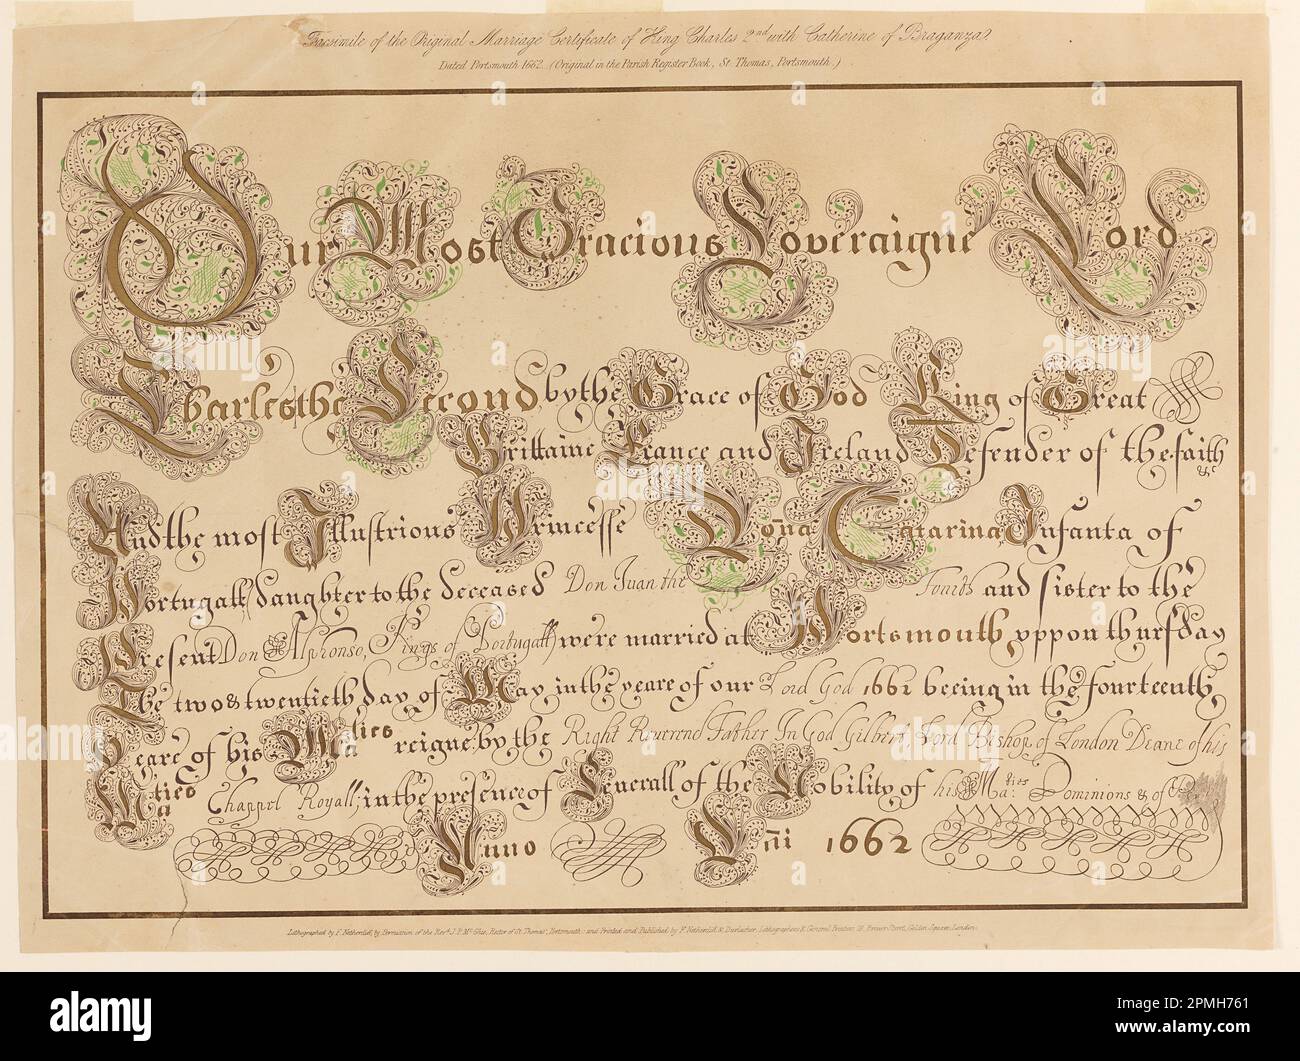 Facsimile of the Original Marriage Certificate of King Charles 2nd with Catherine of Braganza
Dated Portsmouth 1662. (Original in the Parish Register Book, St Thomas, Portsmouth.)
Our Most Gracious Soveraigne Lord
Charles the Second by the Grace of God King of Great
Brittaine France and Ireland Defender of the faith &c
And the most Illustrious Princesse Dōna Catarina Infanta of
Portugall daughter to the deceased Don Juan the fourth and sister to the
Present Don Alphonso, Kings of Portugall were married at Portsmouth uppon thursday
The two & twentieth day of May, in the yeare of our Lord God 1662 beeing in the fourteenth
yeare of his Maties reigne; by the Right Reverend Father In God Gilbert Lord Bishop of London Deane of his
Maties Chappel Royall; in the presence of Generall of the Nobility of his Maties: Dominions & of
Anno Dñi 1662
Lithographed by F. Netherclift, by Permission of the Revd J. P. Mc Ghie, Rector of St Thomas', Portsmouth: and Printed and Published by F. Netherclift & Durlacher, Lithographers & General Printers, 18, Brewer Street, Golden Square, London.
alamy
Image ID: 2PMH761
www.alamy.com